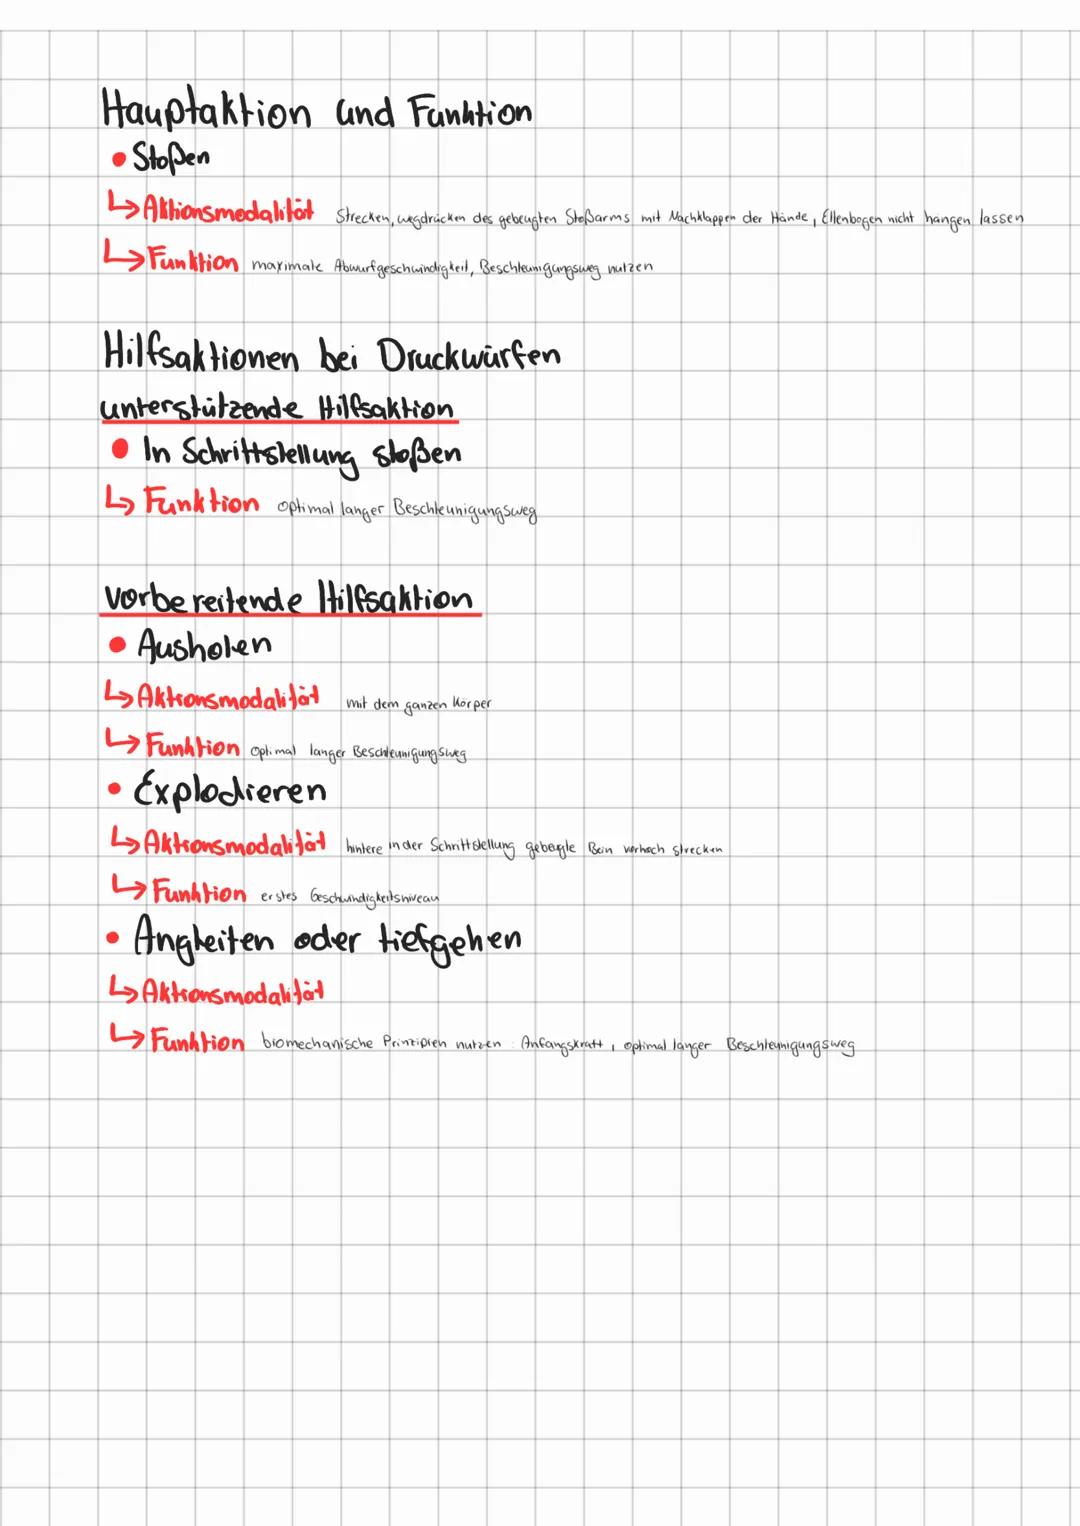 Hauptaktion und Funktion
• Stoßen
↳ Aktionsmodalität Strecken, wegdrücken des gebeugten Stoßarms mit Nachklappen der Hände, Ellenbogen nicht hängen lassen
↳ Funktion maximale Abwurfgeschwindigkeit, Beschleunigungsweg nutzen
Hilfsaktionen bei Druckwürfen
unterstützende Hilfsaktion
• In Schrittstellung stoßen
↳ Funktion optimal langer Beschleunigungsweg
vorbereitende Hilfsaktion
• Ausholen
↳ Aktionsmodalität mit dem ganzen Körper
↳ Funktion optimal langer Beschleunigungsweg
• Explodieren
↳ Aktionsmodalität hintere in der Schrittstellung gebeugte Bein vorhoch strecken
↳ Funktion erstes Geschwindigkeitsniveau
• Angleiten oder tiefgehen
↳ Aktionsmodalität
↳ Funktion biomechanische Prinzipien nutzen: Anfangskraft, optimal langer Beschleunigungsweg